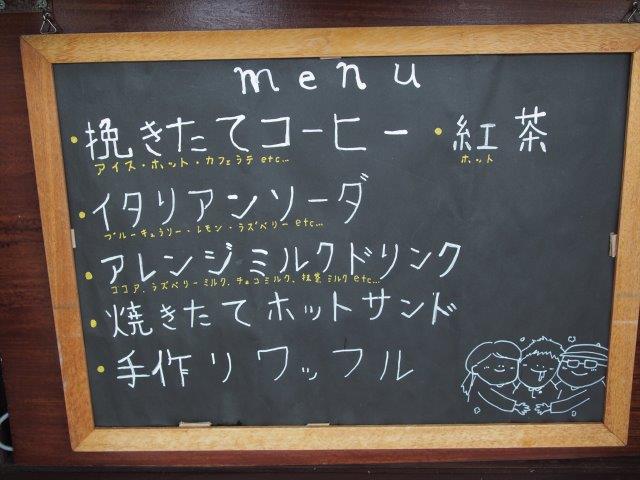 menu
・挽きたてコーヒー ・紅茶
アイス・ホット・カフェラテ etc... ホット
・イタリアンソーダ
ブルーキュラソー・レモン・ラズベリー etc...
・アレンジミルクドリンク
ココア、ラズベリーミルク、チョコミルク、抹茶ミルク etc...
・焼きたてホットサンド
・手作りワッフル